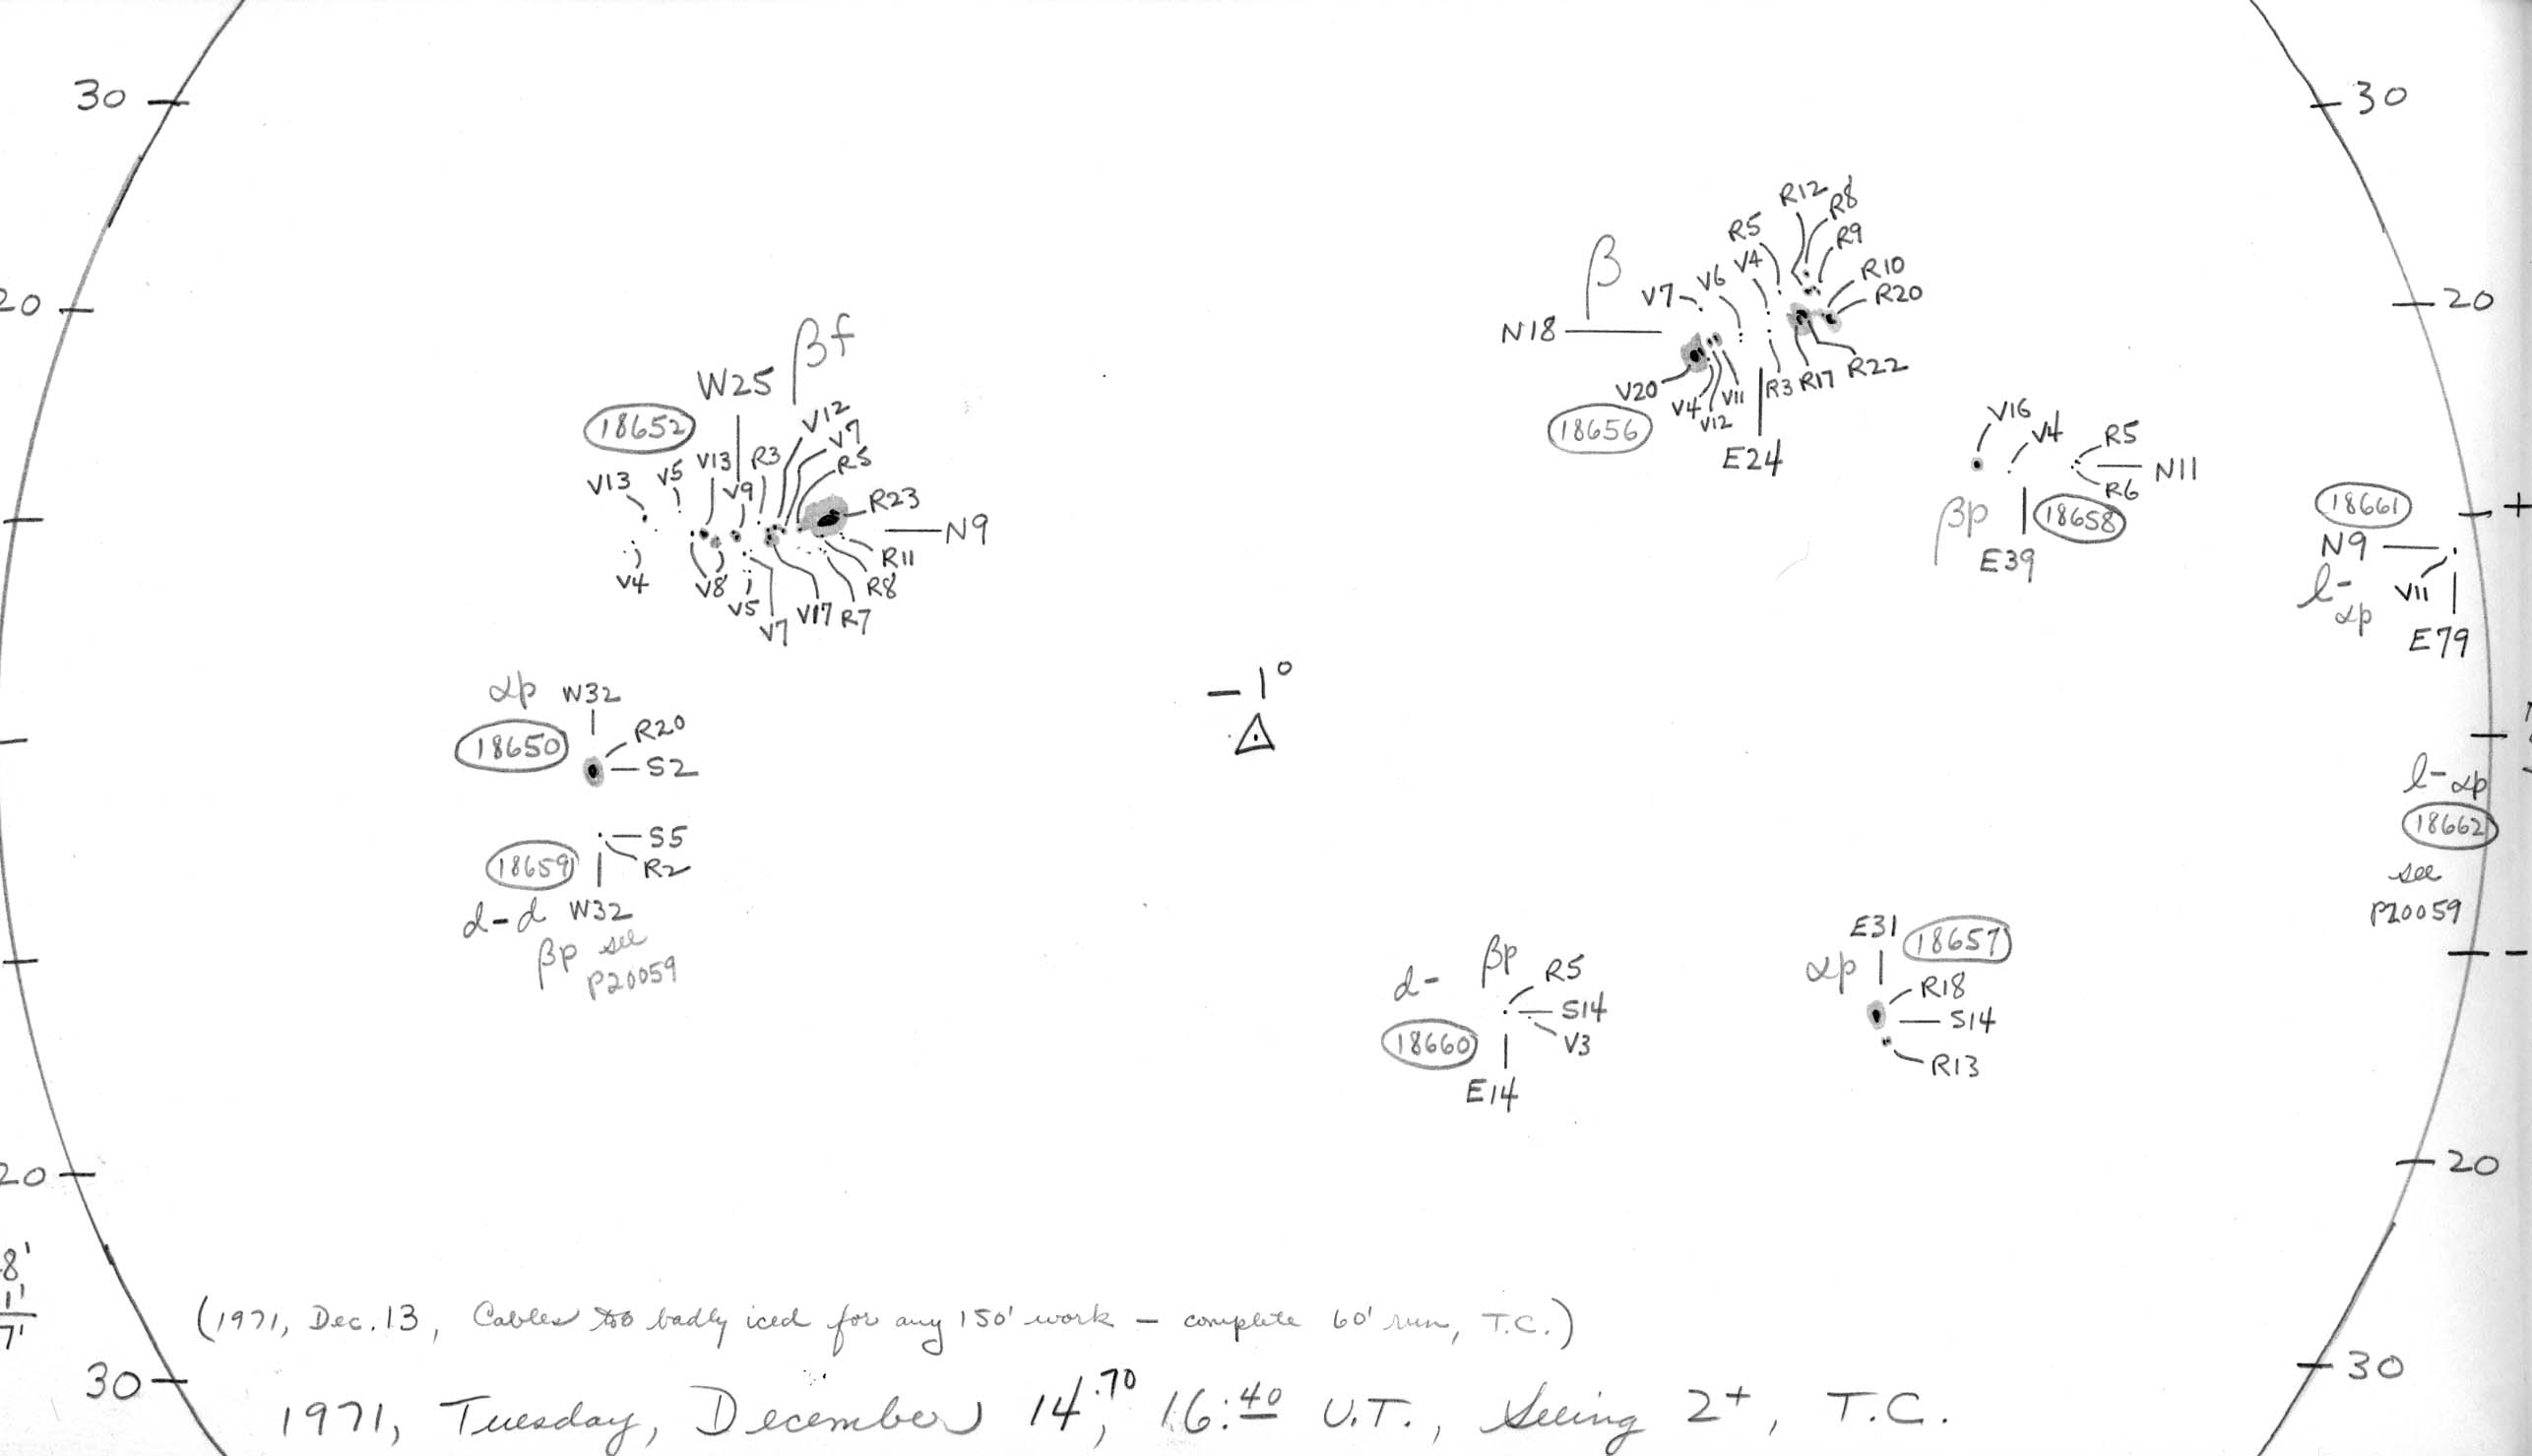 30
30
20
20
R12
R8
R5
R9
β
V7
V6
V4
R10
R20
N18
V20
V4
V12
V11
R3
R17
R22
18656
E24
βf
W25
18652
V12
V7
R5
V13
V5
V13
R3
V9
R23
N9
V4
V8
V5
V7
V17
R7
R8
R11
V16
V4
R5
N11
R6
βp
18658
E39
18661
+
N9
V11
l-
αp
E79
-1°
αp W32
18650
R20
S2
18659
S5
R2
d-d W32
βp see
P20059
l-αp
18662
see
P20059
d- βp R5
S14
V3
18660
E14
E31 18657
αp
R18
S14
R13
-
20
20
8'
1'
7'
(1971, Dec. 13, Cables too badly iced for any 150' work - complete 60' run, T.C.)
30
30
1971, Tuesday, December 14.70, 16:40 U.T., Seeing 2+, T.C.